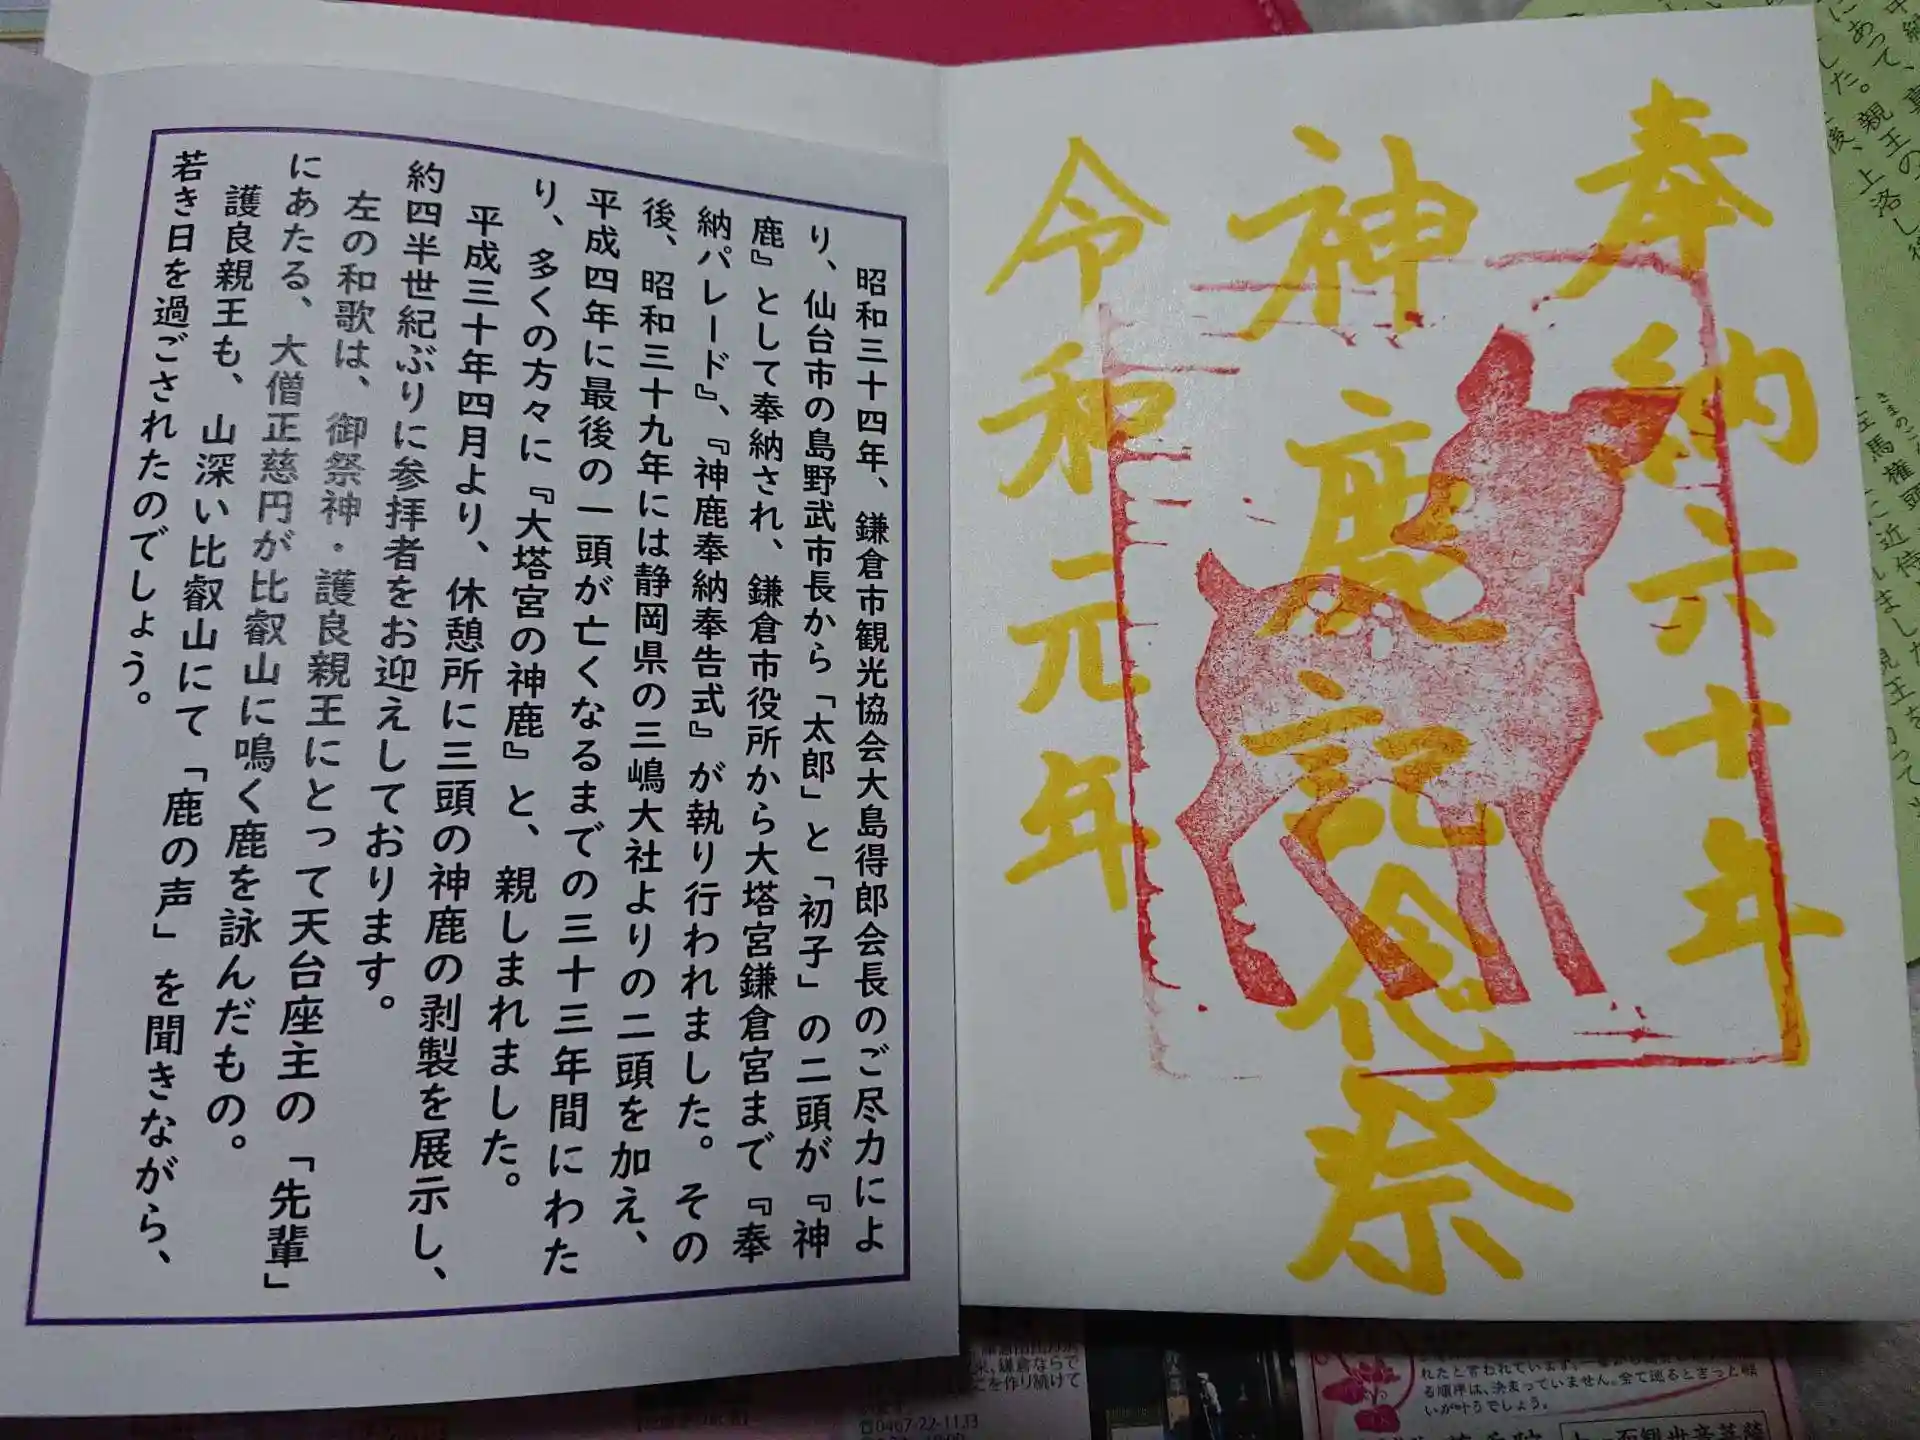 奉納六十年
神鹿記念祭
令和元年
昭和三十四年、鎌倉市観光協会大島得郎会長のご尽力によ
り、仙台市の島野武市長から「太郎」と「初子」の二頭が『神
鹿』として奉納され、鎌倉市役所から大塔宮鎌倉宮まで『奉
納パレード』、『神鹿奉納奉告式』が執り行われました。その
後、昭和三十九年には静岡県の三嶋大社よりの二頭を加え、
平成四年に最後の一頭が亡くなるまでの三十三年間にわた
り、多くの方々に『大塔宮の神鹿』と、親しまれました。
平成三十年四月より、休憩所に三頭の神鹿の剥製を展示し、
約四半世紀ぶりに参拝者をお迎えしております。
左の和歌は、御祭神・護良親王にとって天台座主の「先輩」
にあたる、大僧正慈円が比叡山に鳴く鹿を詠んだもの。
護良親王も、山深い比叡山にて「鹿の声」を聞きながら、
若き日を過ごされたのでしょう。
鎌倉ならで
こを作り続けて
☎0467-22-1133
れたと言われています。
る順序は、決まっていません。全て巡るときっと願
いが叶うでしょう。